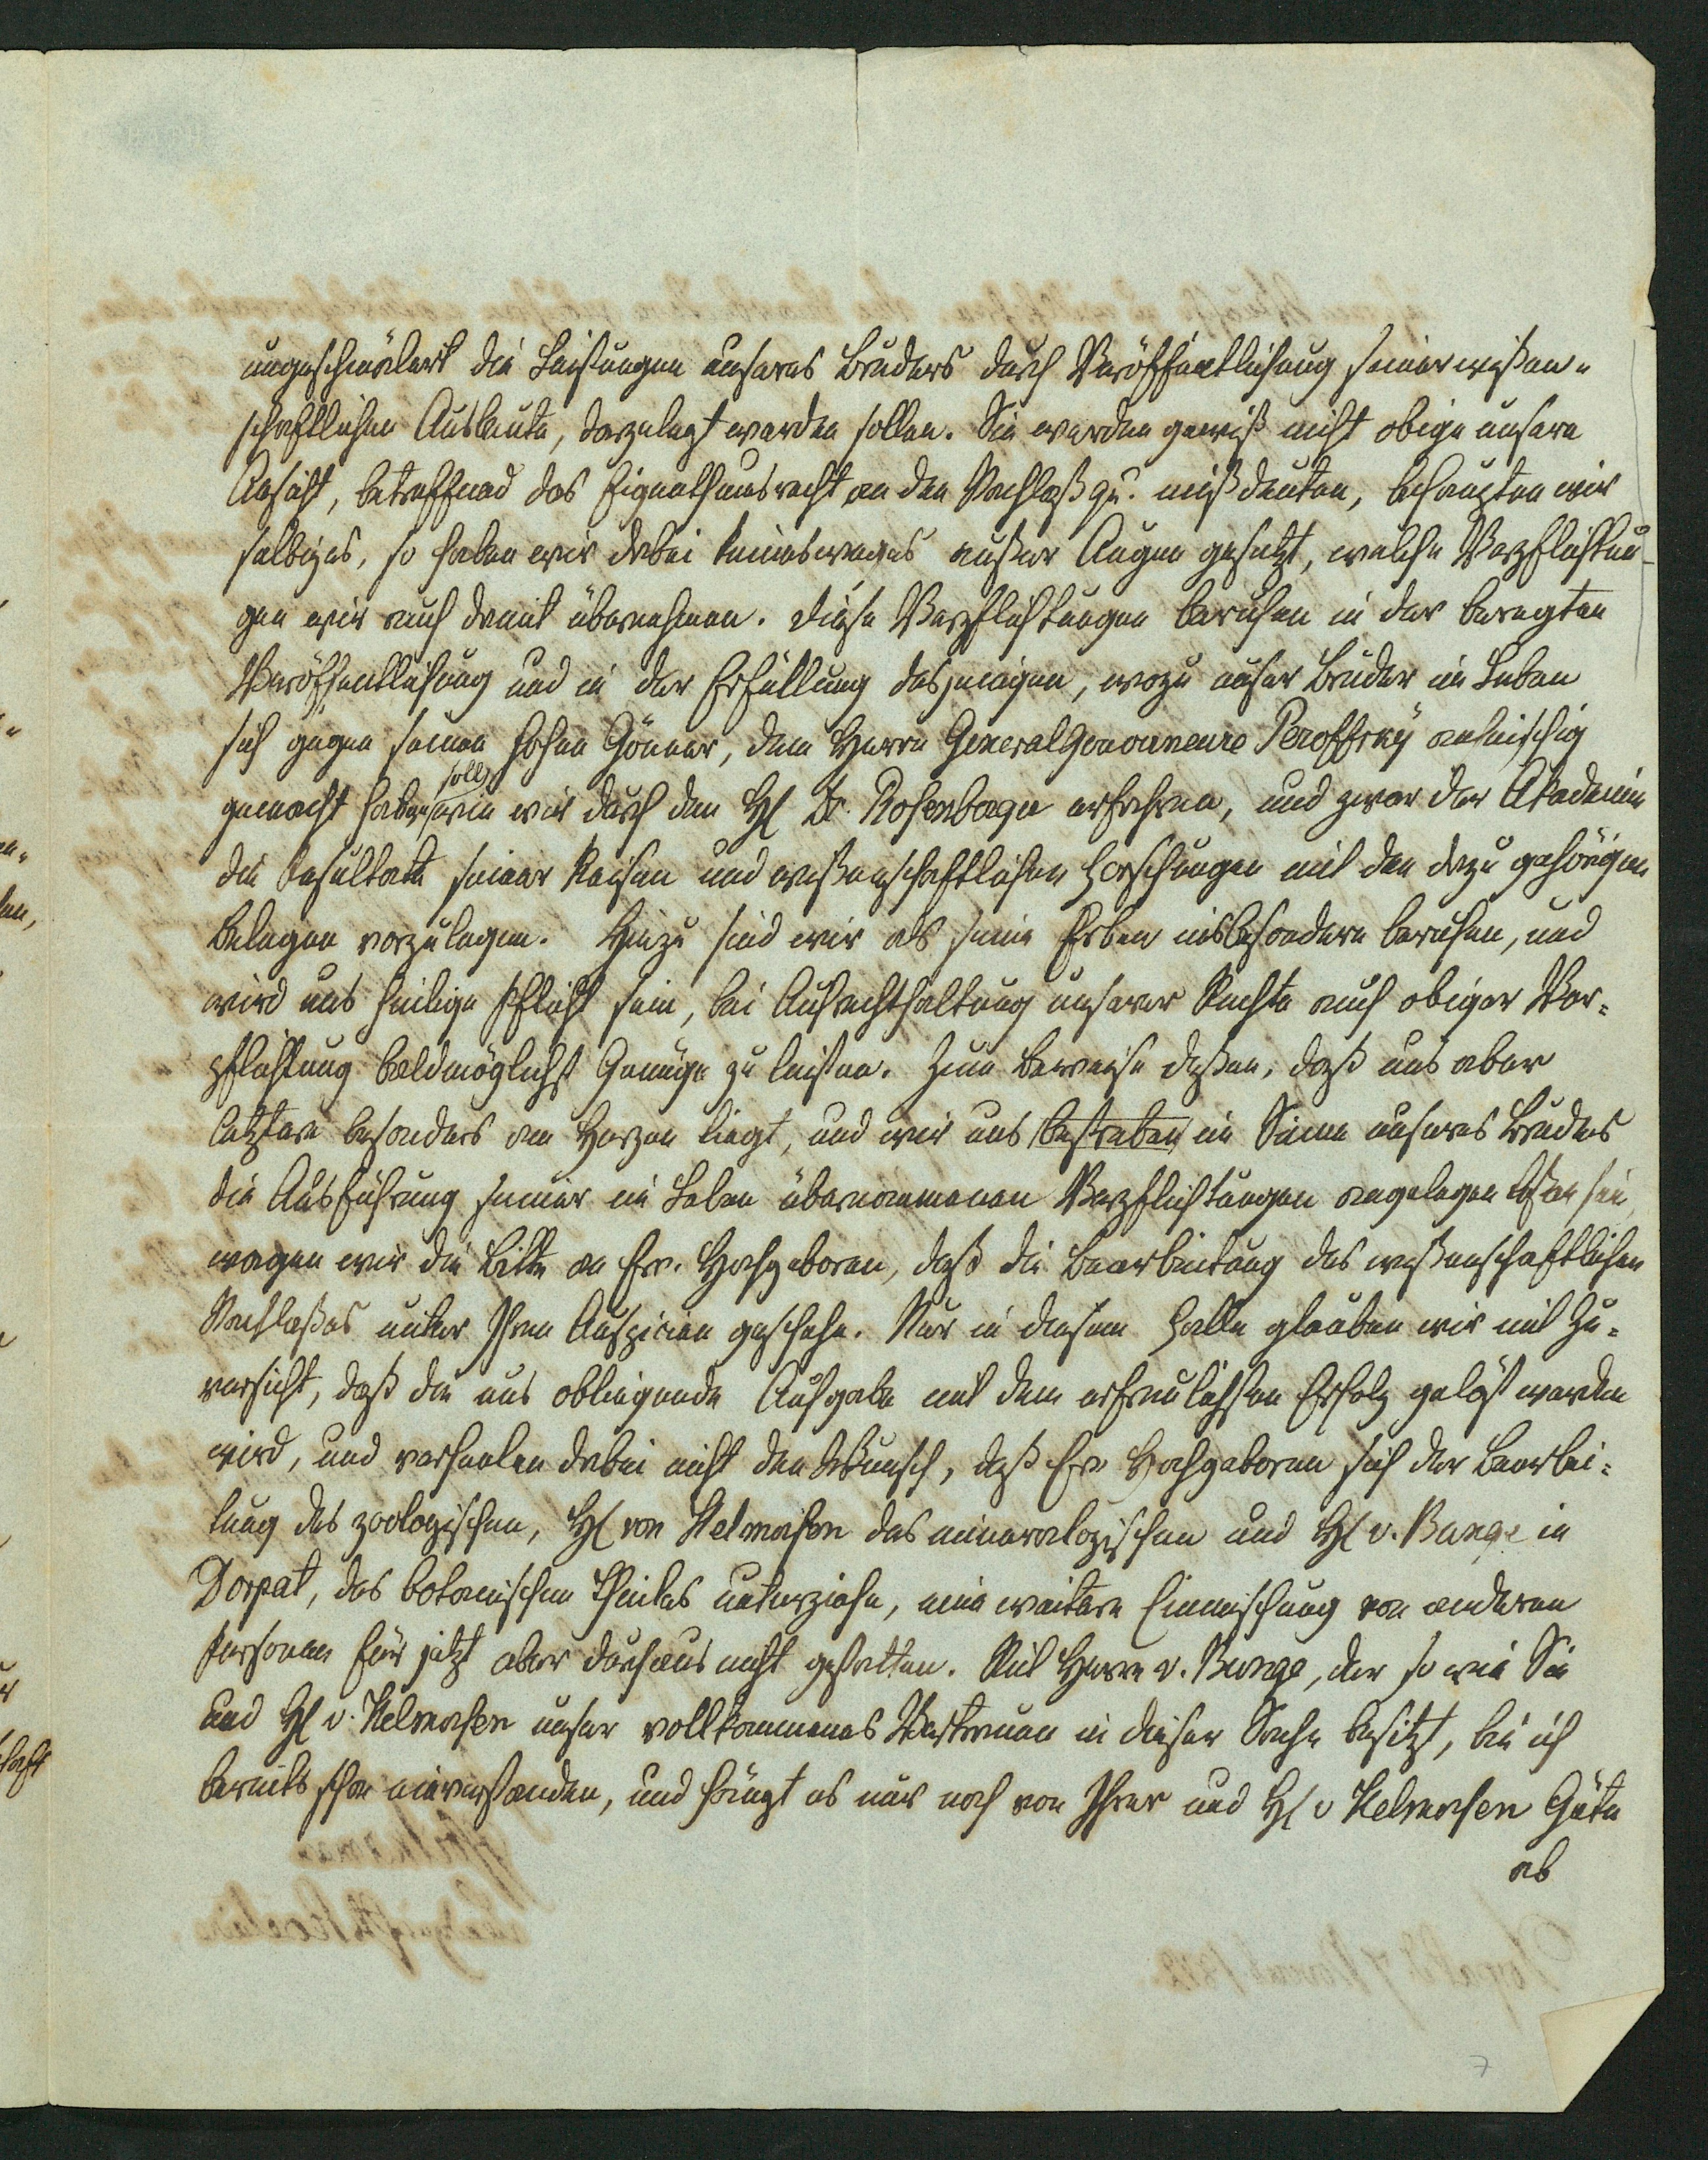 ungeschmälert die Leistungen unseres Bruders durch Veröffentlichung seiner wißen-
schaftlichen Ausbeute, dargelegt werden sollen. Sie werden gewiß nicht obige unsere
Ansicht, betreffend das Eigenthumsrecht an den Nachlaß qu. mißdeuten, behaupten wir
selbiges, so haben wir dabei keineswegs außer Augen gesetzt, welche Verpflichtun-
gen wir auch damit übernehmen. Diese Verpflichtungen beruhen in der beregten
Veröffentlichung und in der Erfüllung desjenigen, wozu unser Bruder im Leben
sich gegen seinen hohen Gönner, dem Herrn GeneralGouverneure Peroffsky anheischig
gemacht haben soll, wie wir durch den H Dr. Rosenberger erfahren, und zwar der Akademie
die Resultate seiner Reisen und wißenschaftlichen Forschungen mit den dazu gehörigen
Belegen vorzulegen. Hiezu sind wir als seine Erben insbesondere berufen, und
wird uns heilige Pflicht sein, bei Aufrechthaltung unserer Rechte auch obiger Ver-
pflichtung baldmöglichst Genüge zu leisten. Zum Beweise deßen, daß uns aber
letztere besonders am Herzen liegt, und wir uns bestreben im Sinne unseres Bruders
die Ausführung seiner im Leben übernommenen Verpflichtungen angelegen sein
wagen wir die Bitte an Ew. Hochgeboren, daß die Bearbeitung des wißenschaftlichen
Nachlaßes unter Ihren Auspicien geschehe. Nur in diesem Falle glauben wir mit Zu-
versicht, daß die uns obliegende Aufgabe mit dem erfreulichsten Erfolg gelöst werden
wird, und verhehlen dabei nicht den Wunsch, daß Ew Hochgeboren sich der Bearbei-
tung des zoologischen, H von Helmersen des mineralogischen und H v. Bunge in
Dorpat, des botanischen Theiles unterziehe, eine weitere Einmischung von anderen
Personen für jetzt aber durchaus nicht gestatten. Mit Herrn v. Bunge, der so wie Sie
und H v. Helmersen unser vollkommenes Vertrauen in dieser Sache besitzt, bin ich
bereits schon einverstanden, und hängt es nur noch von Ihrer und H v Helmersen Güte
ab
7